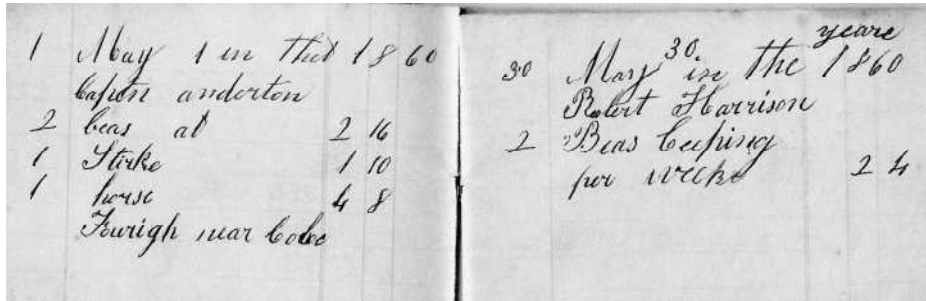 1 May 1 in the 1860
Capen anderton
2 beas at 2 16
1 Stirke 1 10
1 horse 4 8
near
yeare
30 May 30 in the 1860
Robert Harrison
2 Beas Ceeping
per weeke 2 4